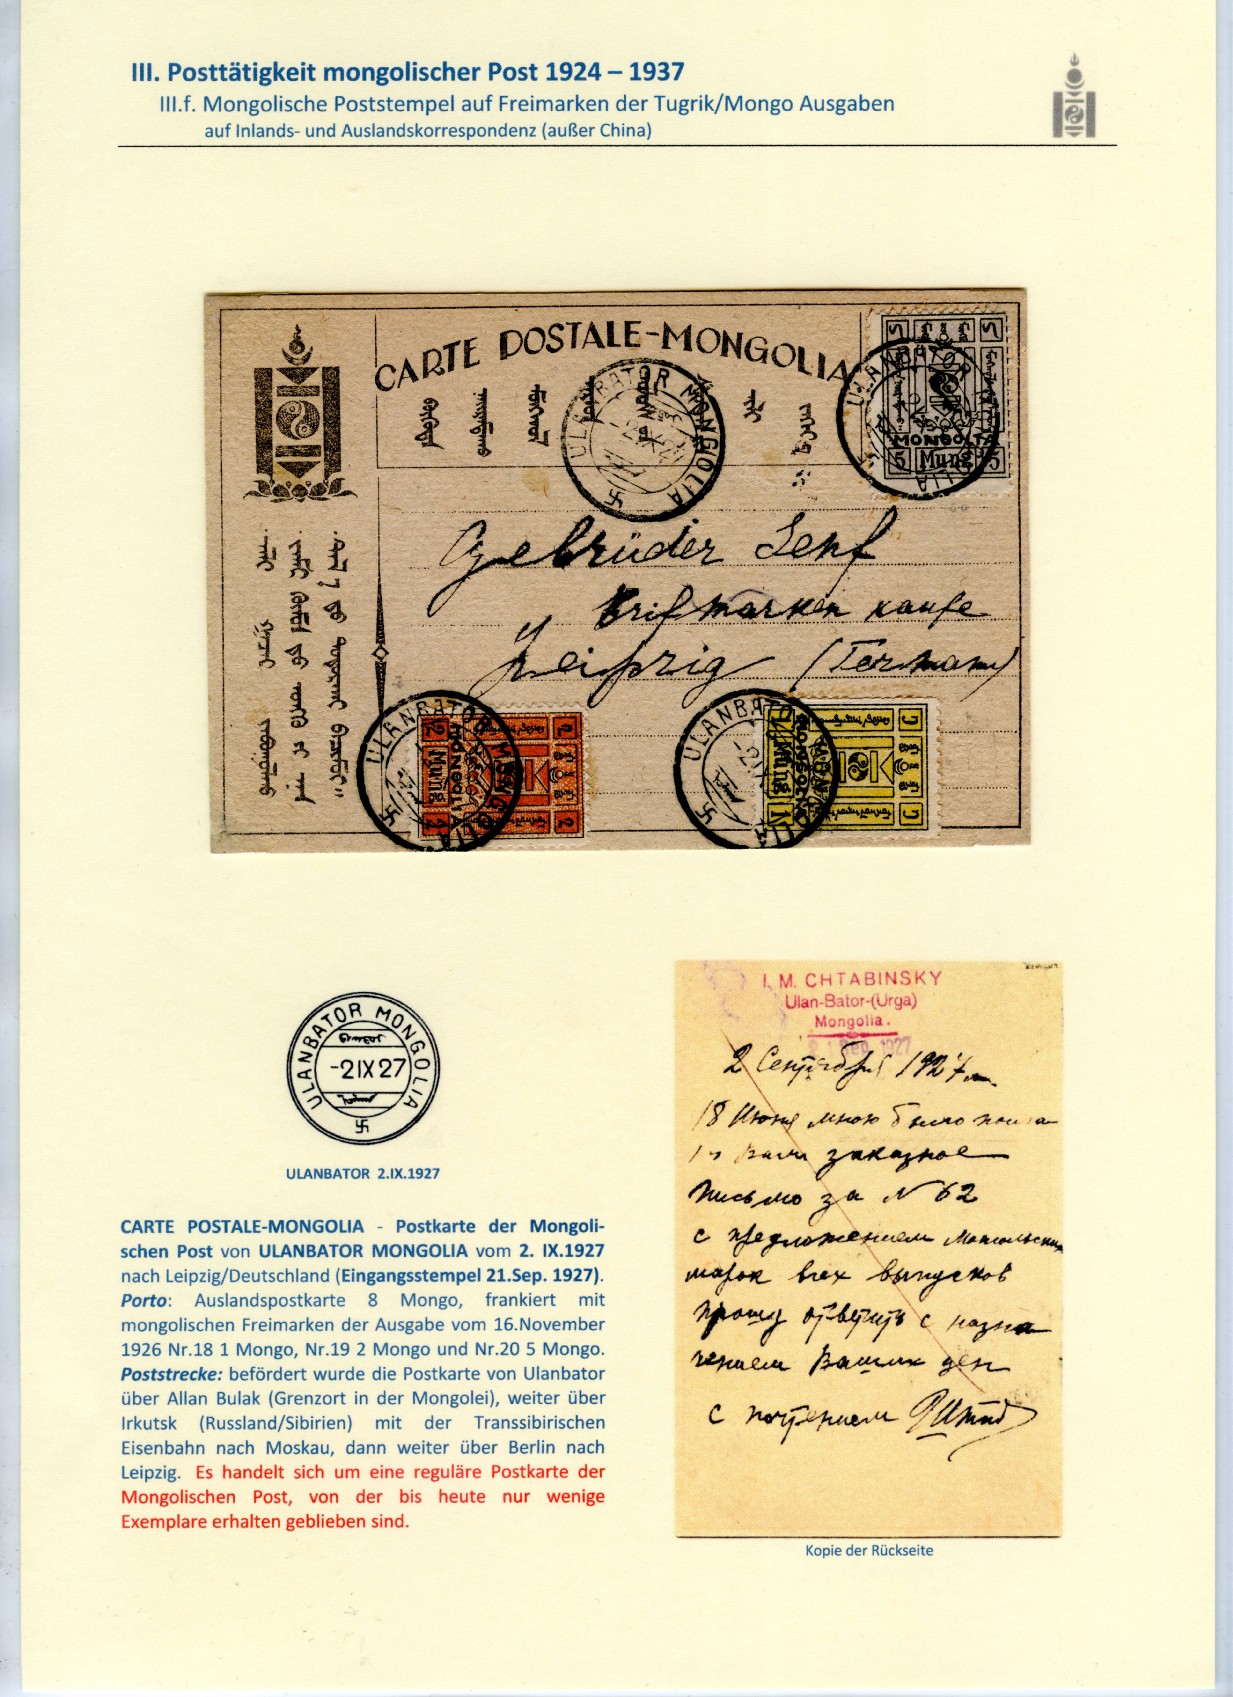 III. Posttätigkeit mongolischer Post 1924 – 1937
III.f. Mongolische Poststempel auf Freimarken der Tugrik/Mongo Ausgaben
auf Inlands- und Auslandskorrespondenz (außer China)
CARTE POSTALE-MONGOLIA
ULANBATOR MONGOLIA
ULANBATOR MONGOLIA
MONGOLIA
5 Mung 5
Gebrüder Senf
Brifmarken kaufe
Leipzig (Germani)
ULANBATOR MONGOLIA
2 Mung 2
MONGOLIA
ULANBATOR MONGOLIA
Mung
MONGOLIA
ULANBATOR MONGOLIA
-2 IX 27
ULANBATOR 2.IX.1927
CARTE POSTALE-MONGOLIA - Postkarte der Mongoli-
schen Post von ULANBATOR MONGOLIA vom 2. IX.1927
nach Leipzig/Deutschland (Eingangsstempel 21.Sep. 1927).
Porto: Auslandspostkarte 8 Mongo, frankiert mit
mongolischen Freimarken der Ausgabe vom 16.November
1926 Nr.18 1 Mongo, Nr.19 2 Mongo und Nr.20 5 Mongo.
Poststrecke: befördert wurde die Postkarte von Ulanbator
über Allan Bulak (Grenzort in der Mongolei), weiter über
Irkutsk (Russland/Sibirien) mit der Transsibirischen
Eisenbahn nach Moskau, dann weiter über Berlin nach
Leipzig. Es handelt sich um eine reguläre Postkarte der
Mongolischen Post, von der bis heute nur wenige
Exemplare erhalten geblieben sind.
I. M. CHTABINSKY
Ulan-Bator-(Urga)
Mongolia.
21 Sep. 1927
2 Сентября 1927 г.
18 Июня мною было посла
но Вам заказное
письмо за N 62
с предложением Монгольских
марок всех выпусков
Прошу ответить с назна
чением Ваших цен
с почтением
Kopie der Rückseite